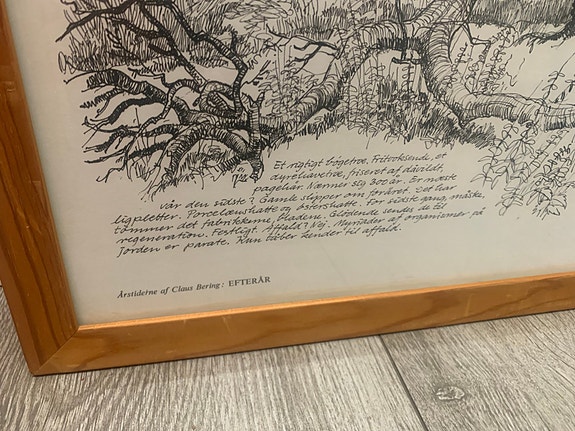 Et rigtigt bøgetræ. Fritvoksende, et
dyrehavetræ, friseret af dåvildt,
pagehår. Nærmer sig 300 år. Er næste
vår den sidste? Gamle slipper om foråret. Det har
ligpletter. Porcelænshatte og østershatte. For sidste gang, måske,
tømmer det fabrikkerne, bladene. Glødende sendes de til
regeneration. Festligt. Affald? Nej. Myriader af organismer på
jorden er parate. Kun taber bliver til affald.
Årstiderne af Claus Bering: EFTERÅR